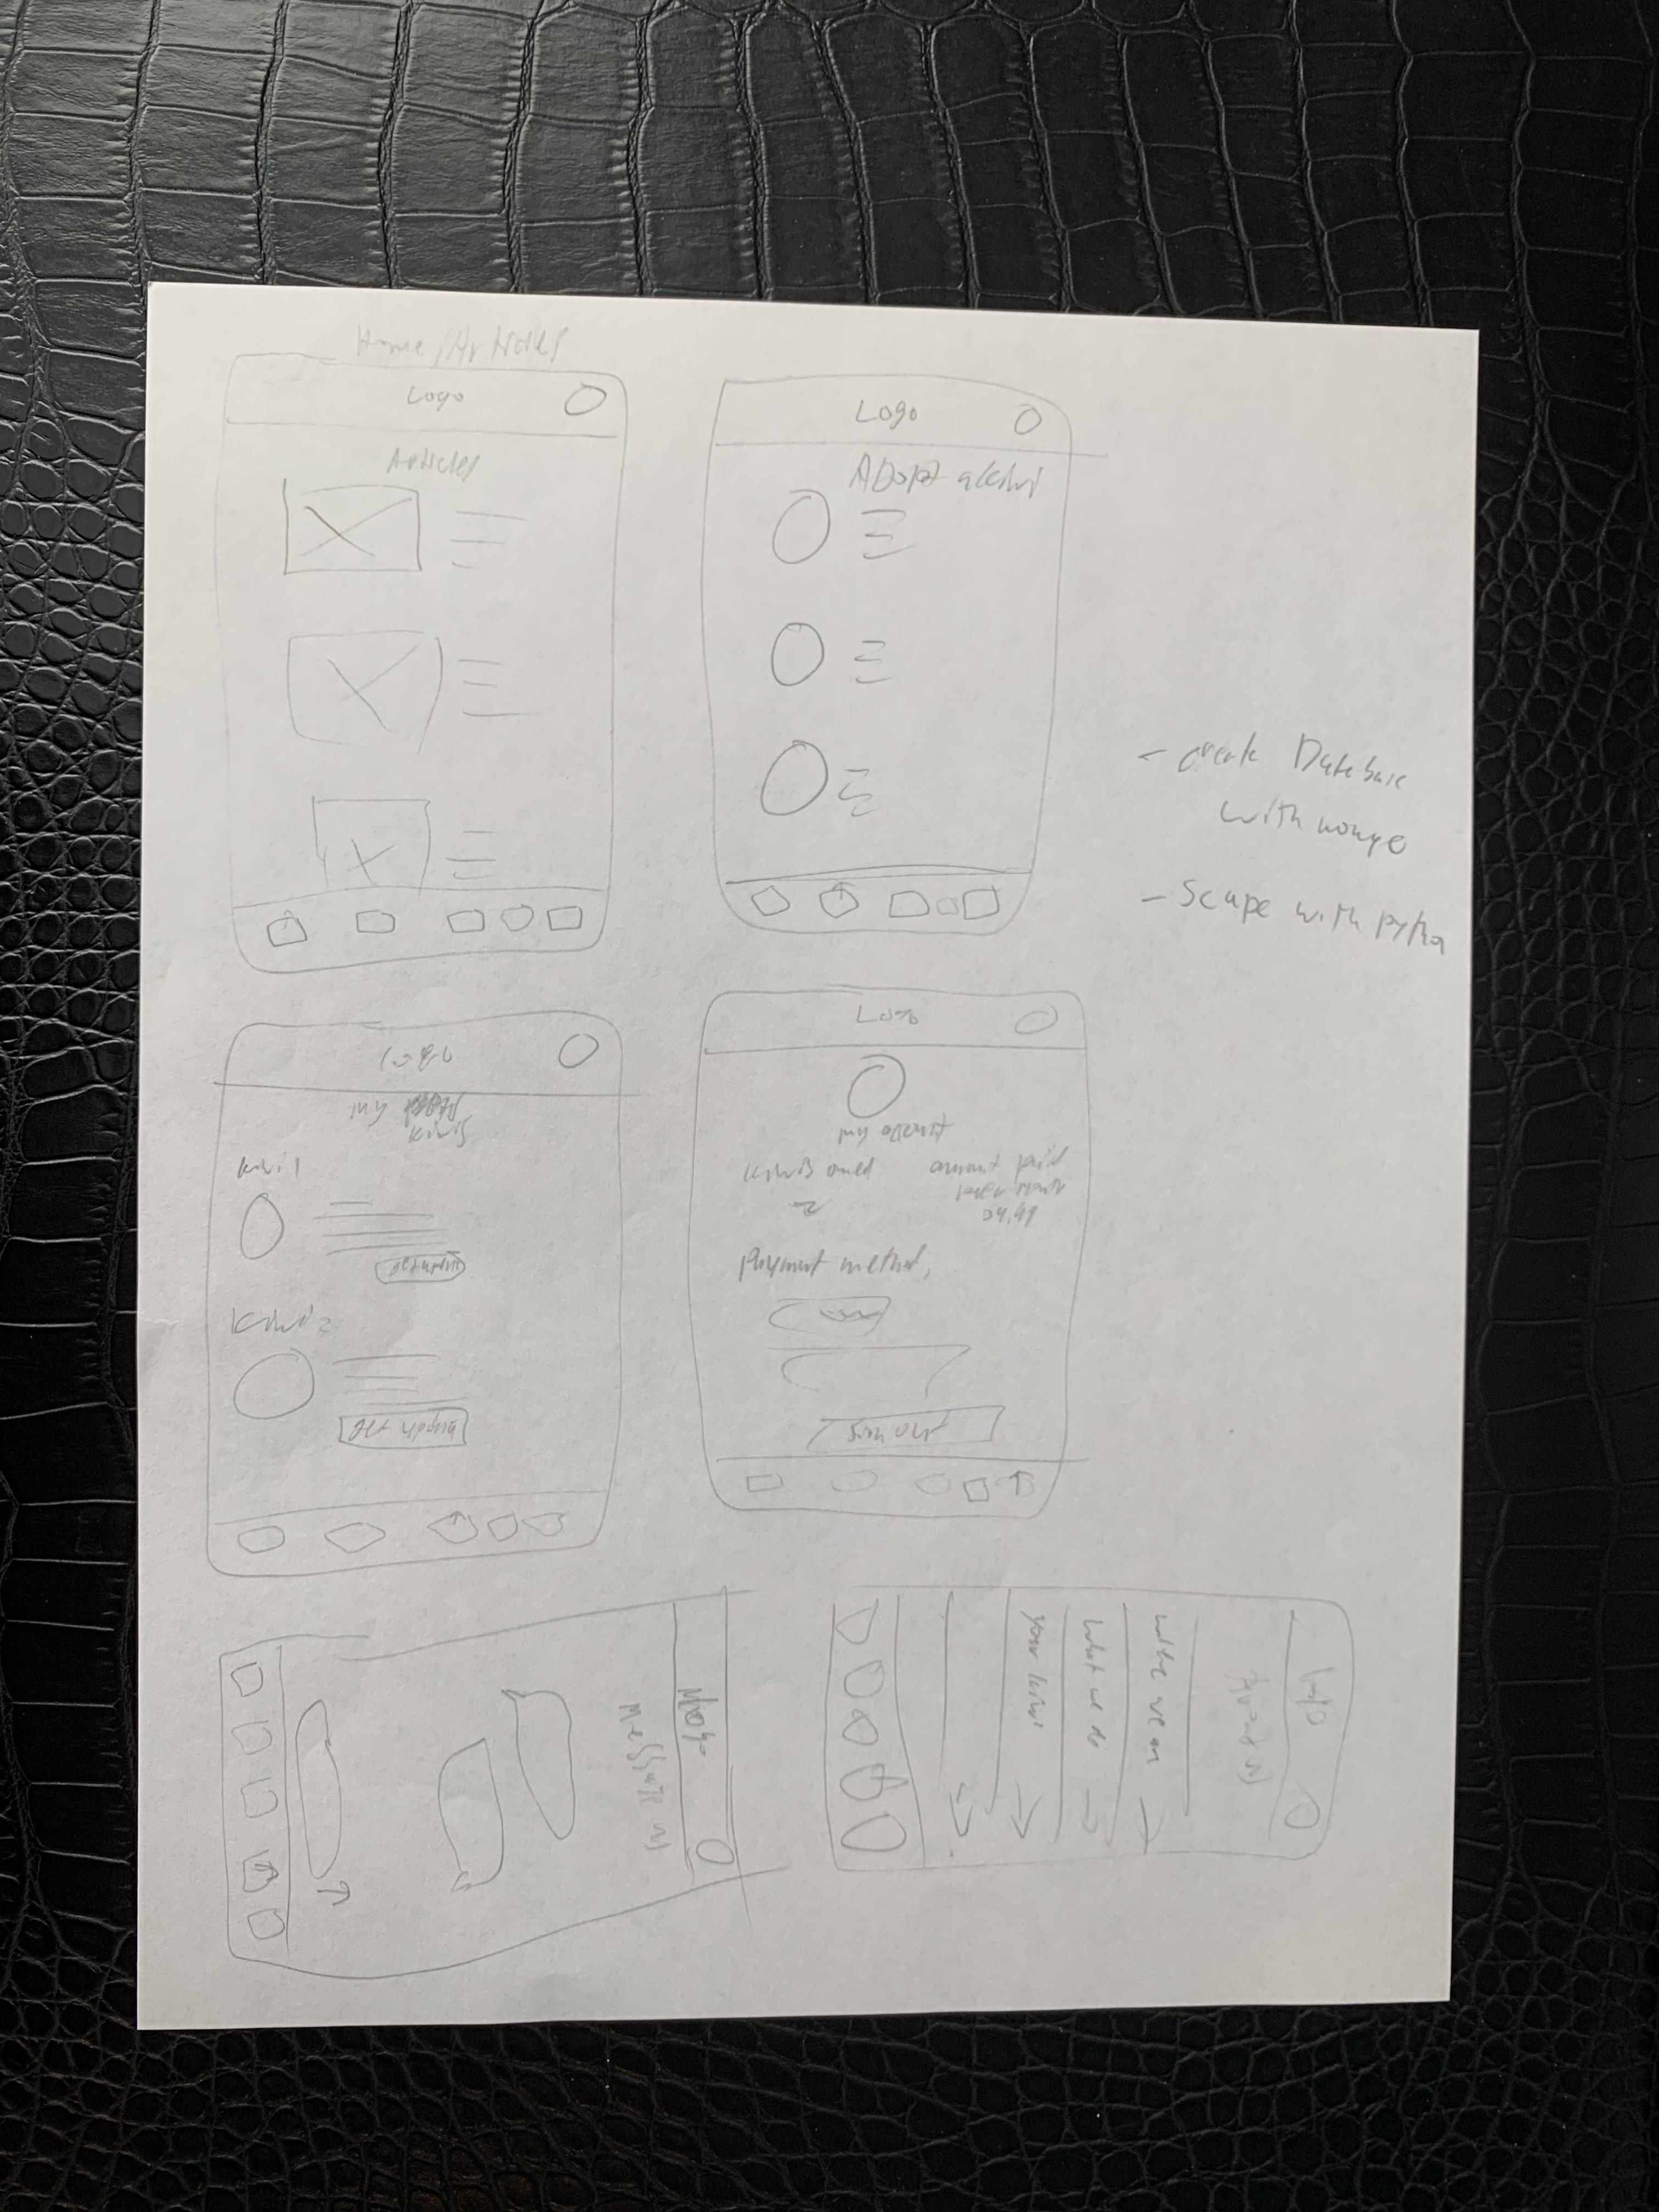 Home/Articles
Logo
Articles
Logo
Adopt a kiwi
- create Database
with mongo
- Scrape with pytho
Logo
my
kiwis
kiwi 1
get update
Kiwi 2
get update
Logo
my account
kiwis owned
2
amount paid
per month
24.49
Payment method
Sign out
Logo
Message us
Logo
About us
who we are
What we do
your kiwi